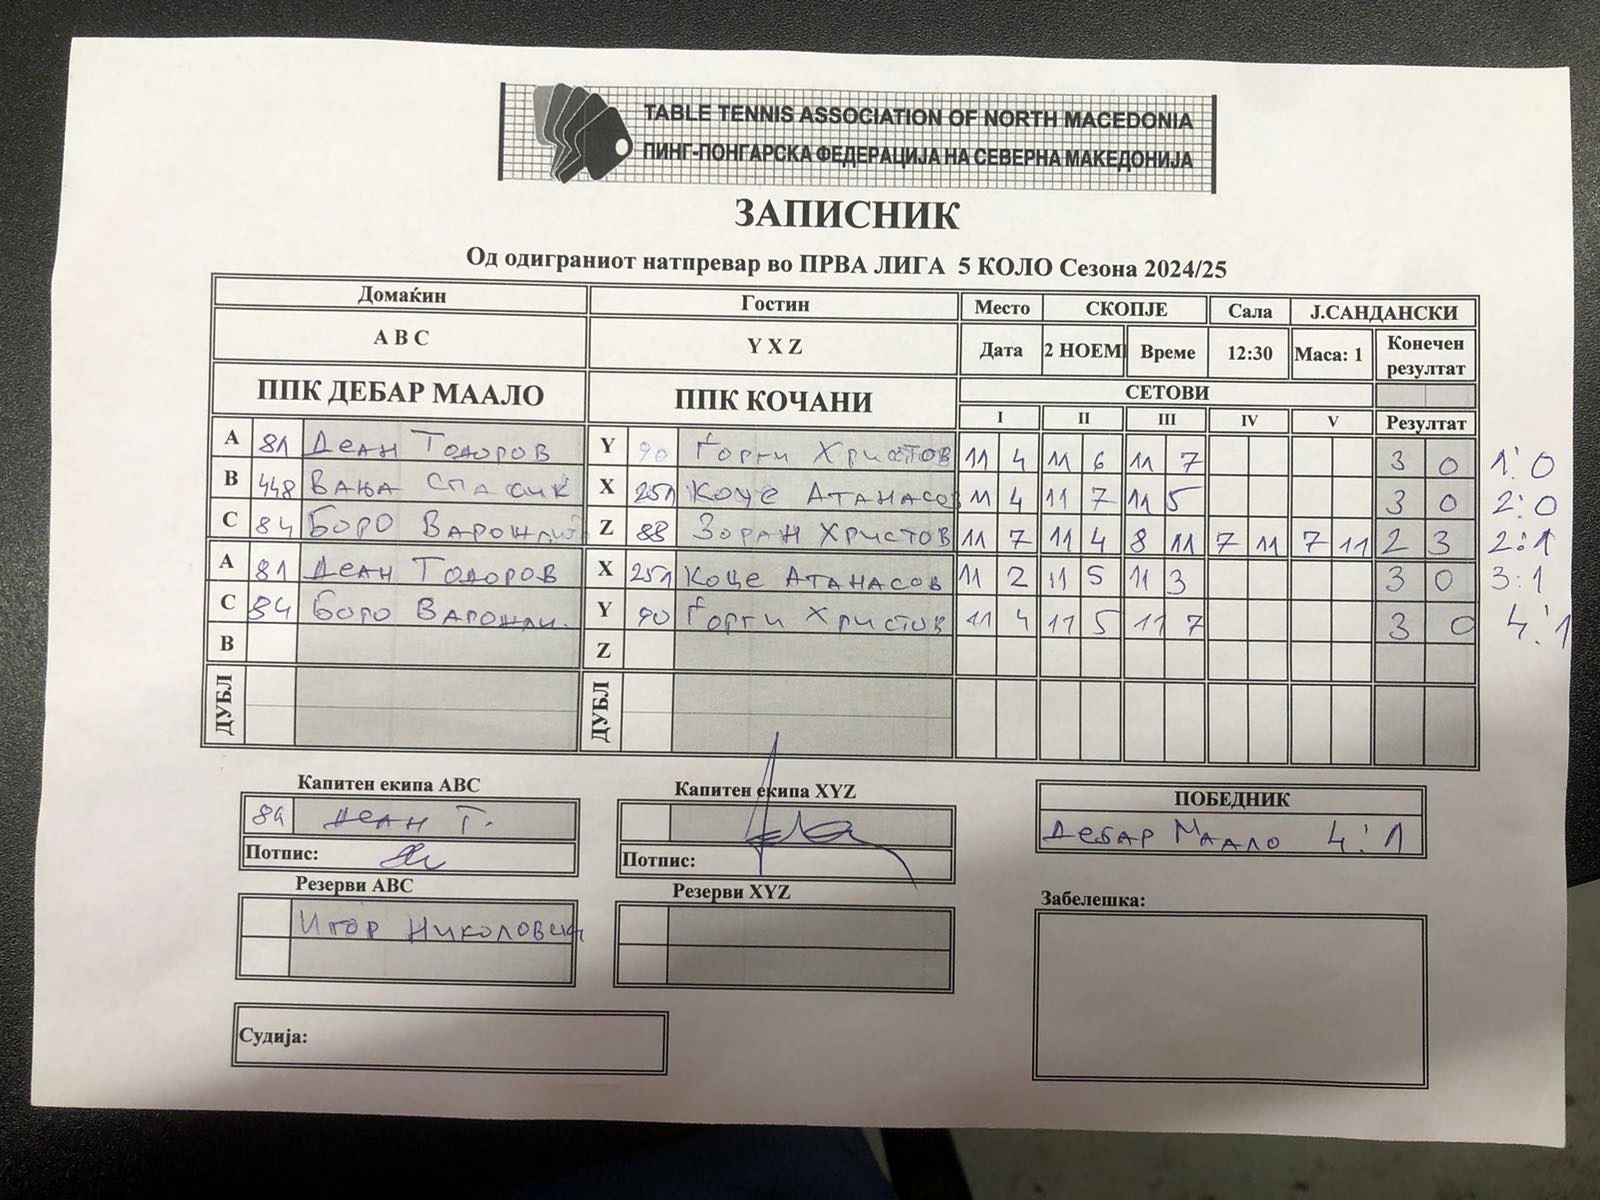 TABLE TENNIS ASSOCIATION OF NORTH MACEDONIA
ПИНГ-ПОНГАРСКА ФЕДЕРАЦИЈА НА СЕВЕРНА МАКЕДОНИЈА
ЗАПИСНИК
Од одиграниот натпревар во ПРВА ЛИГА 5 КОЛО Сезона 2024/25
Домаќин Гостин Место СКОПЈЕ Сала Ј.САНДАНСКИ
A B C Y X Z Дата 2 НОЕМ Време 12:30 Маса: 1 Конечен резултат
ППК ДЕБАР МААЛО ППК КОЧАНИ СЕТОВИ
I II III IV V Резултат
A 81 Деан Тодоров Y 90 Ѓорѓи Христов 11 4 11 6 11 7 3 0 1:0
B 448 Вања Спасиќ X 251 Коце Атанасов 11 4 11 7 11 5 3 0 2:0
C 84 Боро Z 88 Зоран Христов 11 7 11 4 8 11 7 11 7 11 2 3 2:1
A 81 Деан Тодоров X 251 Коце Атанасов 11 2 11 5 11 3 3 0 3:1
C 84 Боро Y 90 Ѓорѓи Христов 11 4 11 5 11 7 3 0 4:1
B Z
ДУБЛ ДУБЛ
Капитен екипа ABC Капитен екипа XYZ
ПОБЕДНИК
Деан Т.
Дебар Маало 4:1
Потпис: Потпис:
Резерви ABC Резерви XYZ
Забелешка:
Игор Николовски
Судија: